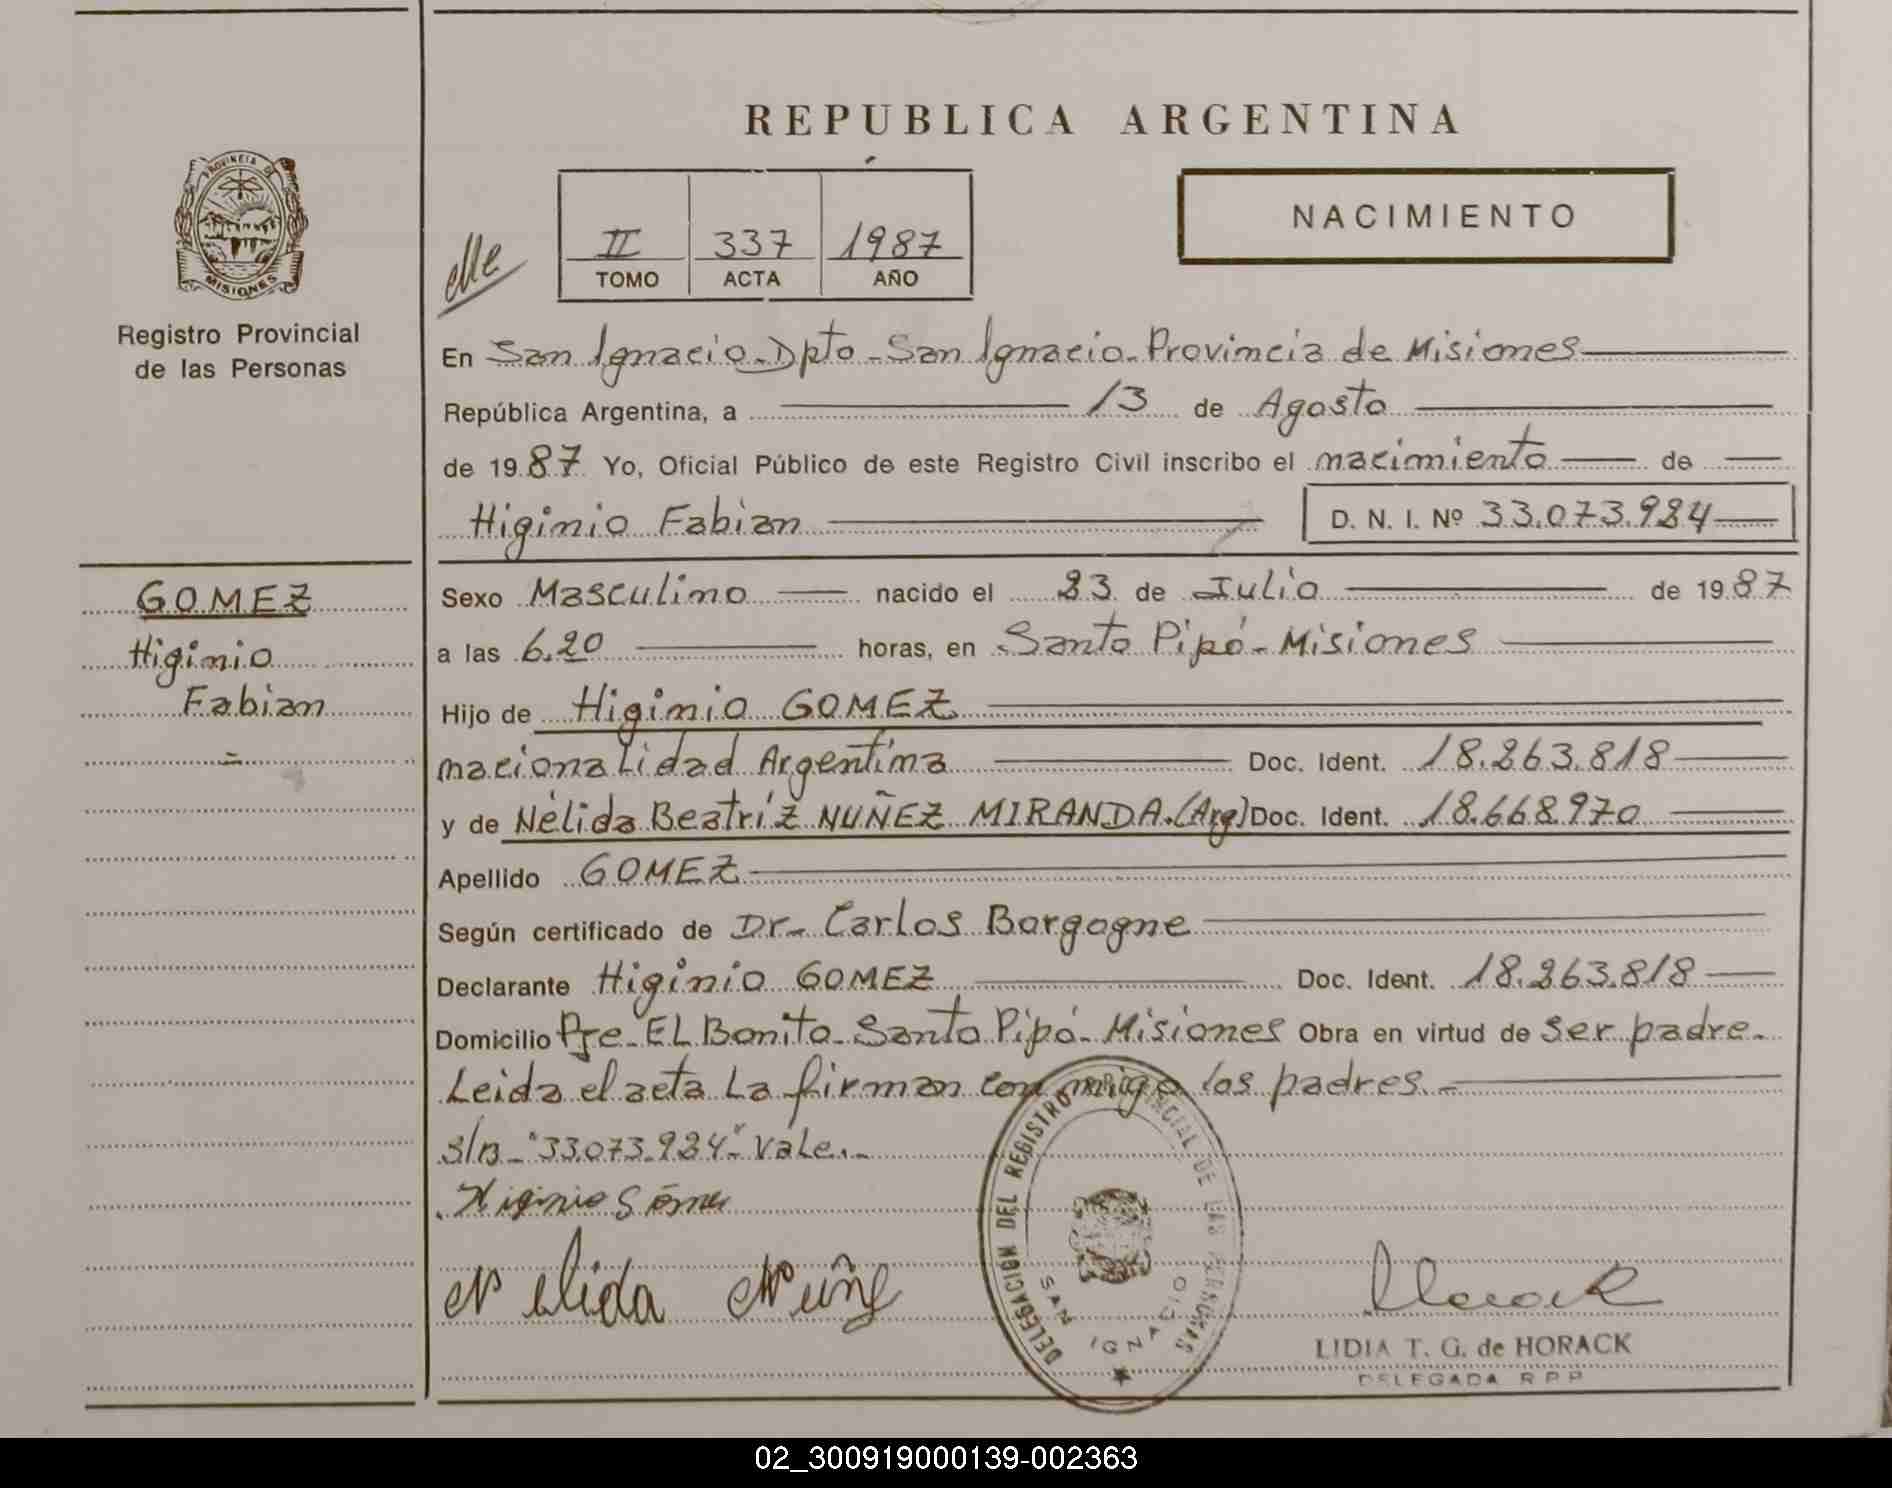 REPUBLICA ARGENTINA
PROVINCIA DE
MISIONES
Registro Provincial
de las Personas
II 337 1987
TOMO ACTA AÑO
NACIMIENTO
En San Ignacio-Dpto-San Ignacio-Provincia de Misiones
República Argentina, a 13 de Agosto
de 1987 Yo, Oficial Público de este Registro Civil inscribo el nacimiento de
Higinio Fabian D. N. I. Nº 33.073.984
GOMEZ
Higinio
Fabian
Sexo Masculino nacido el 23 de Julio de 1987
a las 6.20 horas, en Santo Pipó-Misiones
Hijo de Higinio GOMEZ
nacionalidad Argentina Doc. Ident. 18.263.818
y de Nélida Beatríz NUÑEZ MIRANDA.(Arg) Doc. Ident. 18.668.970
Apellido GOMEZ
Según certificado de Dr. Carlos Borgogne
Declarante Higinio GOMEZ Doc. Ident. 18.263.818
Domicilio Pje-EL Bonito-Santo Pipó-Misiones Obra en virtud de ser padre.
Leida el acta La firman con migo los padres.-
S/B-"33.073.984" Vale.-
Higinio Gómez
Nelida Nuñe
DELEGACION DEL REGISTRO PROVINCIAL DE LAS PERSONAS
SAN IGNACIO
LIDIA T. G. de HORACK
DELEGADA R P P
02_300919000139-002363